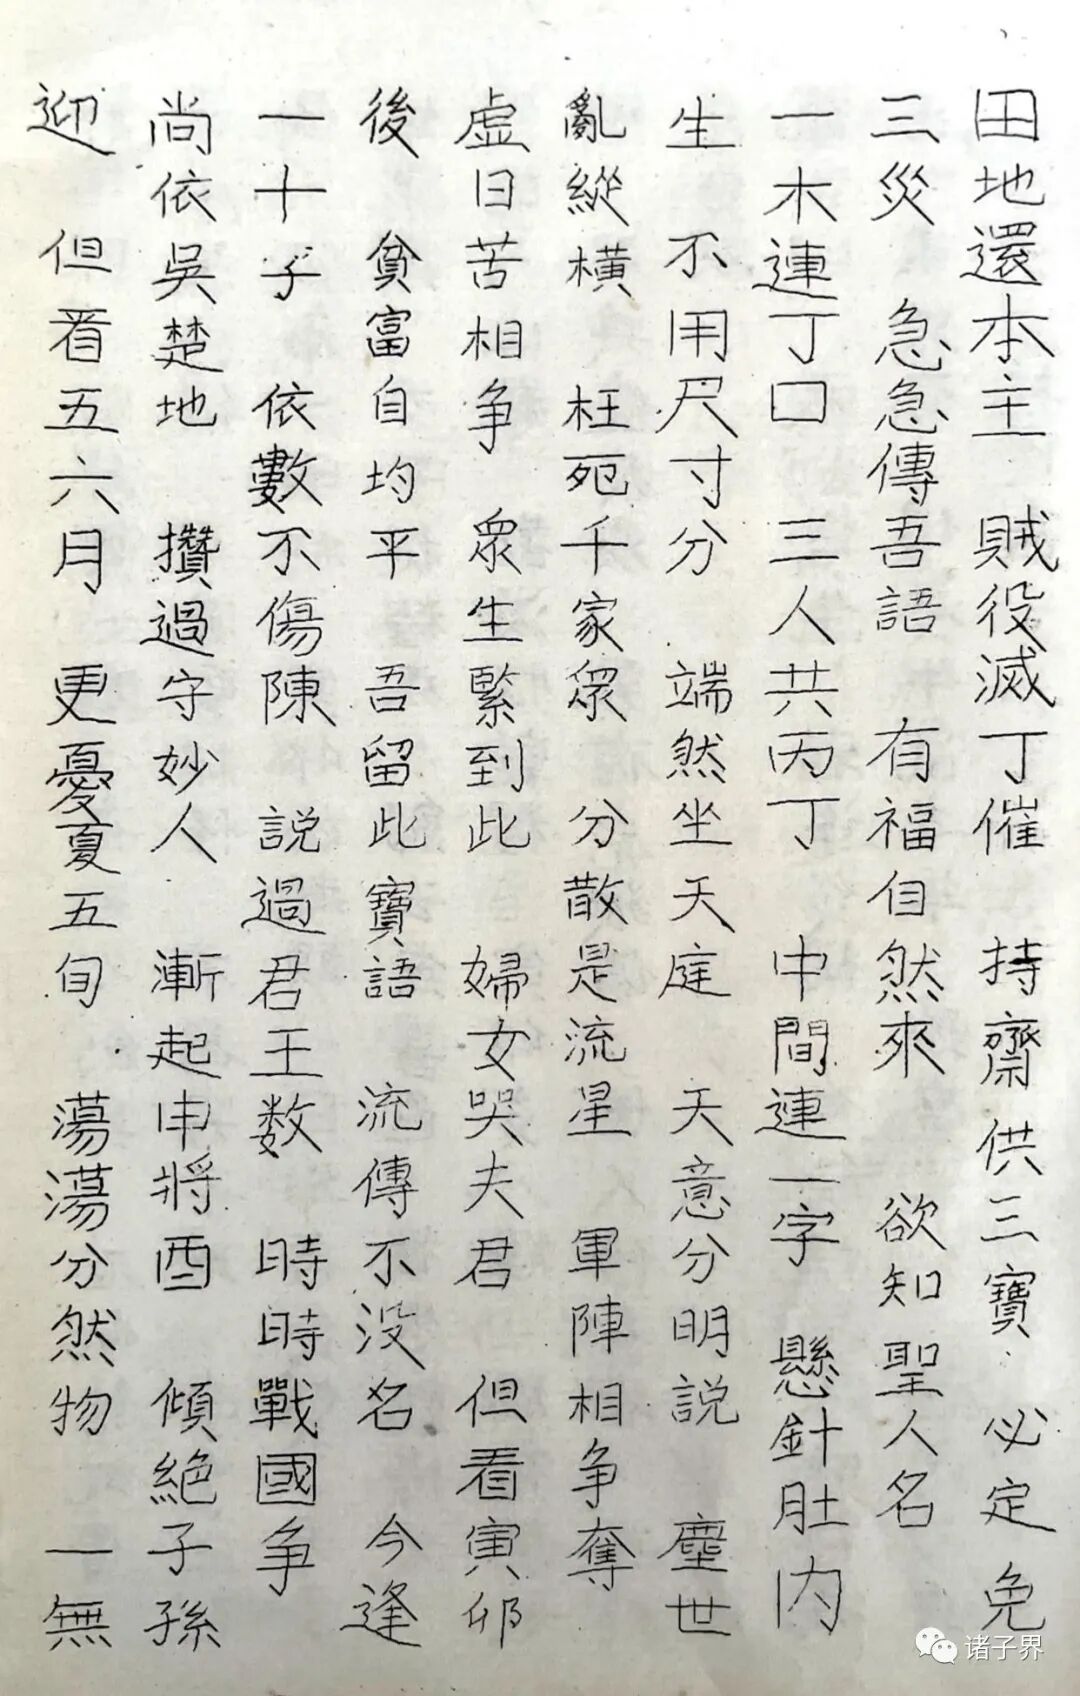 田地還本主 賊役滅丁催 持齋供三寶 必定免
三災 急急傳吾語 有福自然來 欲知聖人名
一木連丁口 三人共丙丁 中間連一字 懸針肚內
生 不用尺寸分 端然坐天庭 天意分明説 塵世
亂縱橫 枉死千家眾 分散是流星 軍陣相争奪
虛日苦相争 眾生緊到此 婦女哭夫君 但看寅卯
後 貧富自均平 吾留此寶語 流傳不没名 今逢
一十子 依數不傷陳 説過君王数 時時戰國爭
尚依吳楚地 攢過守妙人 漸起申將酉 傾絕子孫
迎 但看五六月 更憂夏五旬 蕩蕩分然物 一無
诸子界